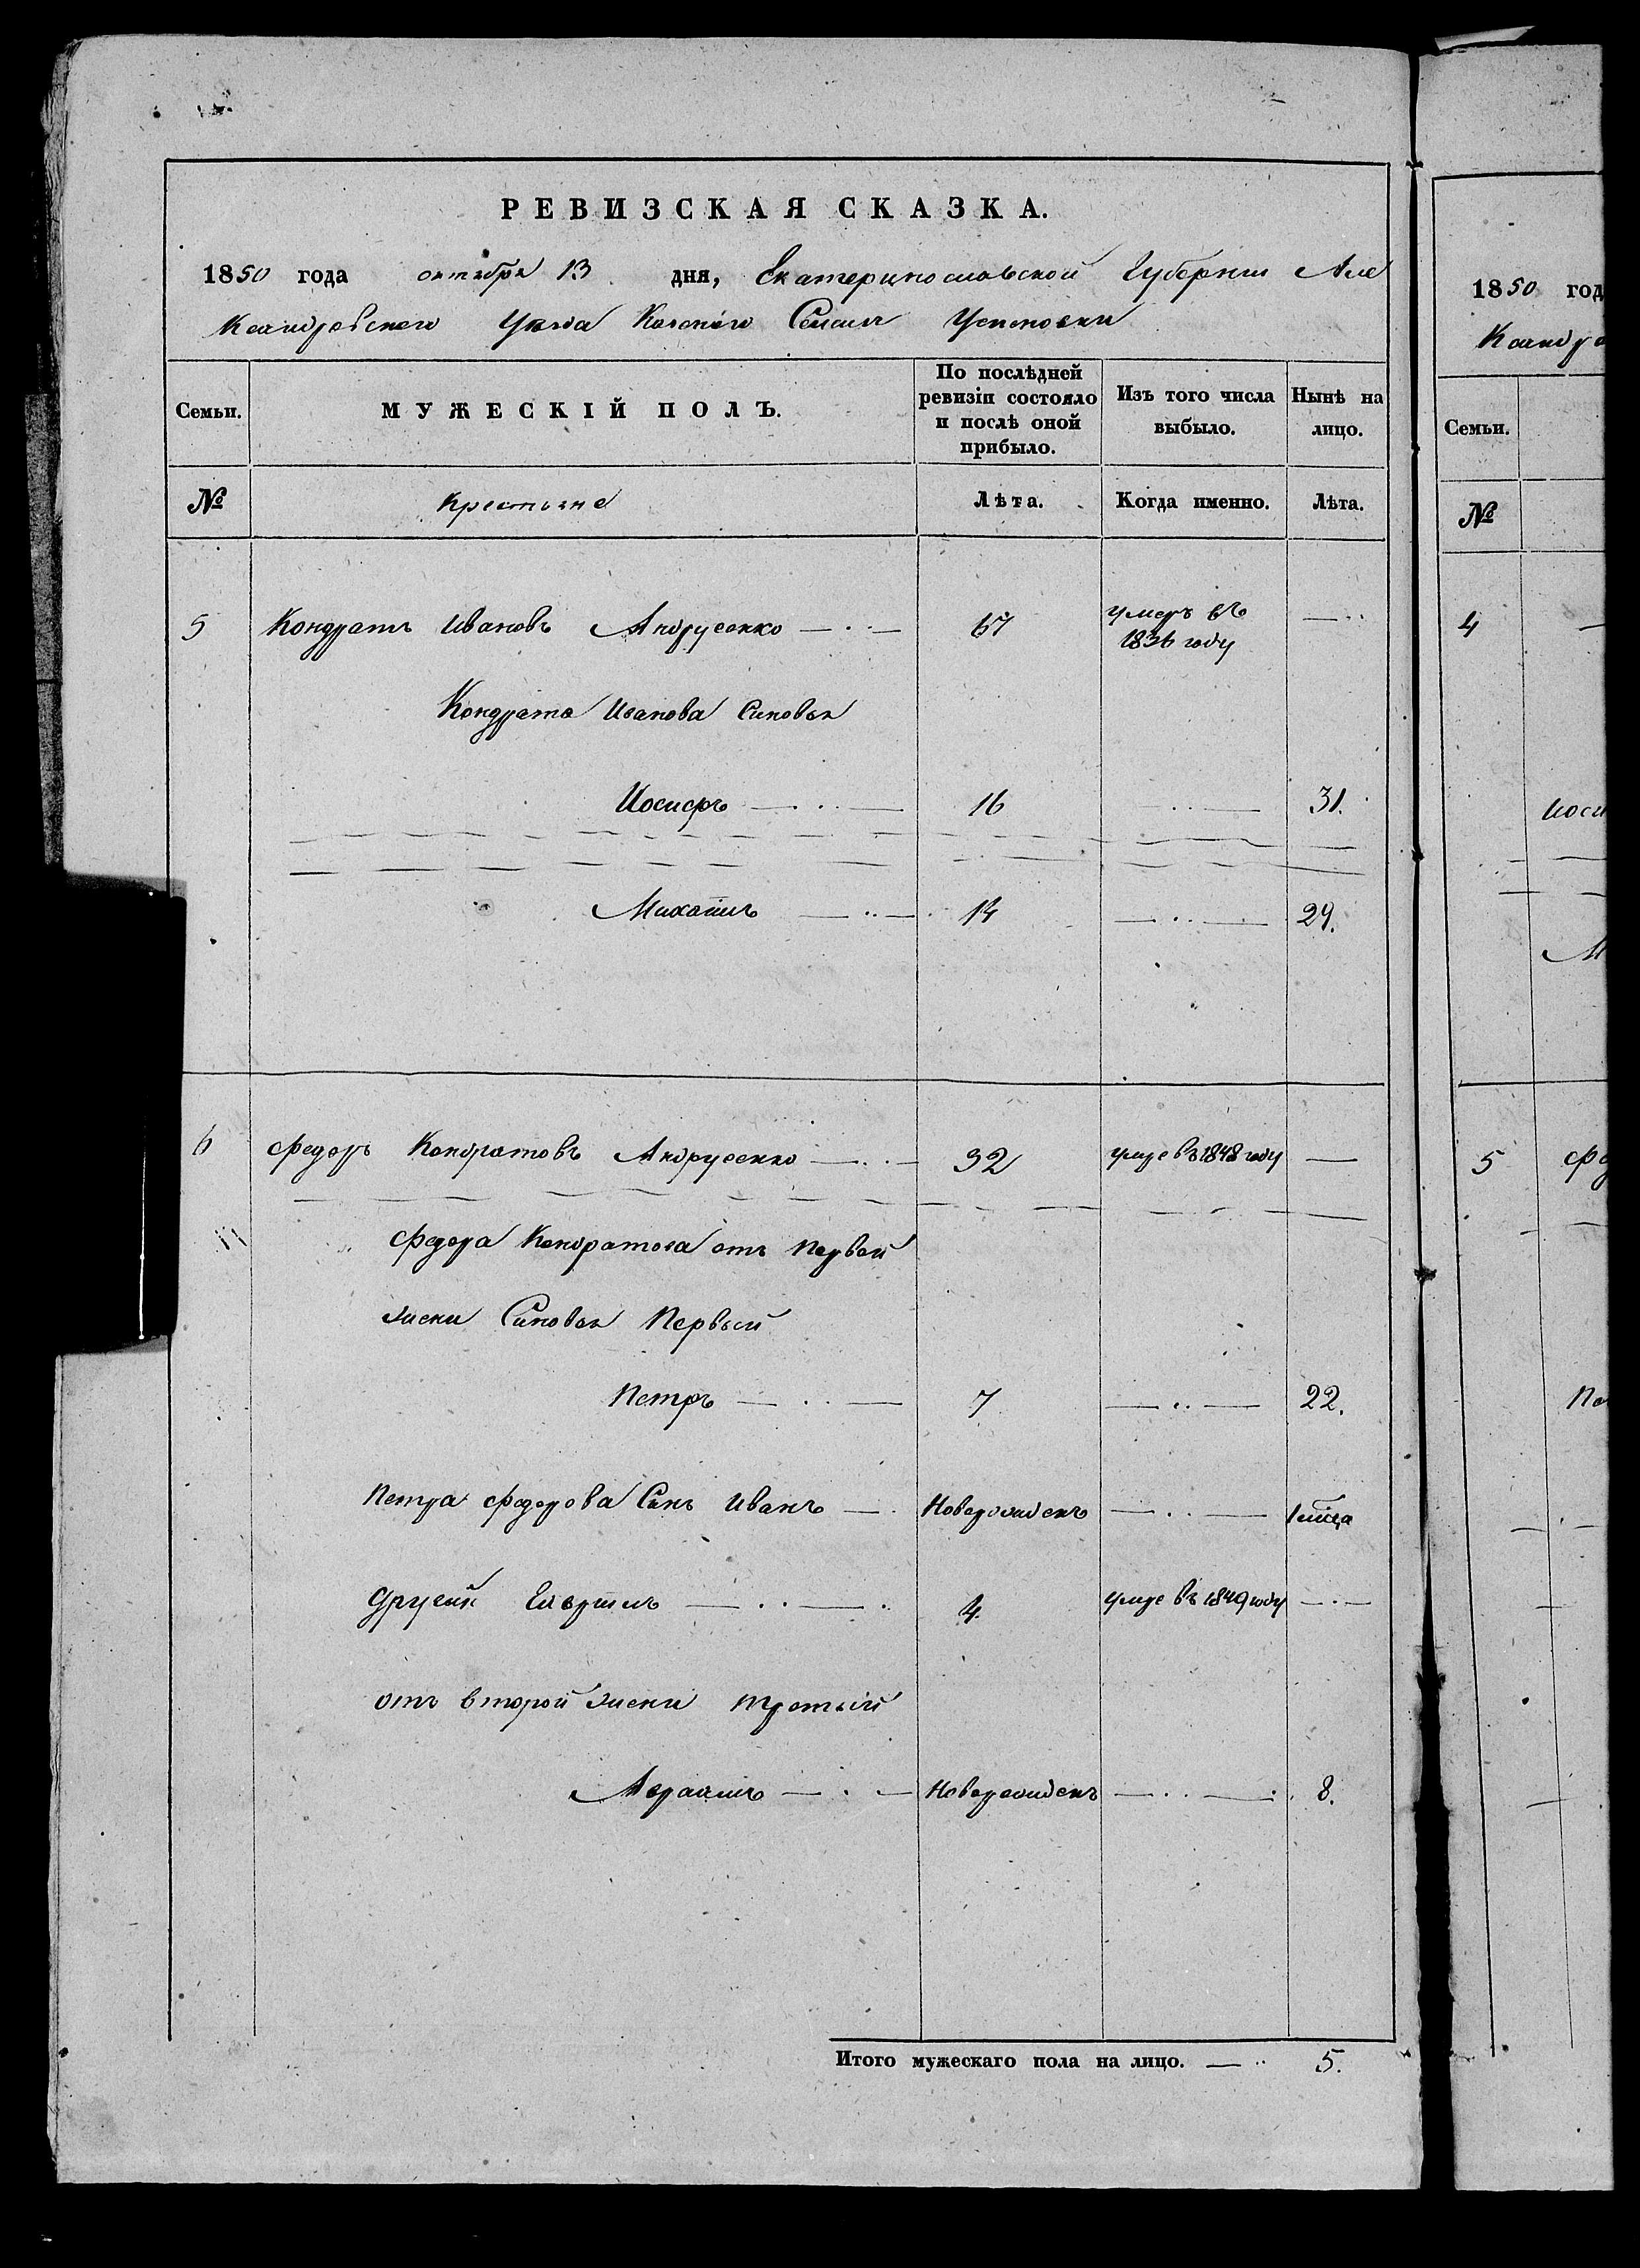 РЕВИЗСКАЯ СКАЗКА.
1850 года октября 13 дня, Екатеринославской Губернии Але
ксандровскаго Уезда Казенаго Селенія Успеновки
Семьи.
МУЖЕСКІЙ ПОЛЪ.
По послѣдней ревизіи состояло и послѣ оной прибыло.
Изъ того числа выбыло.
Нынѣ на лицо.
№
Крестьяне
Лѣта.
Когда именно.
Лѣта.
5 Кондратъ Ивановъ Андрусенко 67 умеръ въ
1836 году
Кондрата Иванова Синовья
Иосифъ 16 31.
Михаилъ 14 29.
6 Федоръ Кондратовъ Андрусенко 32 умре въ 1848 году
Федора Кондратова отъ Первой
жени Синовья Первый
Петръ 7 22.
Петра Федорова Синъ Иванъ Новорожденъ 1 мѣсца
Другій Гаврилъ 4 умре въ 1849 году
отъ второй жени третьій
Авраамъ Новорожденъ 8.
Итого мужескаго пола на лицо. 5.
1850 год
Ксандро
Семьи.
№
4
Иоси
М
5 Фед
Пе